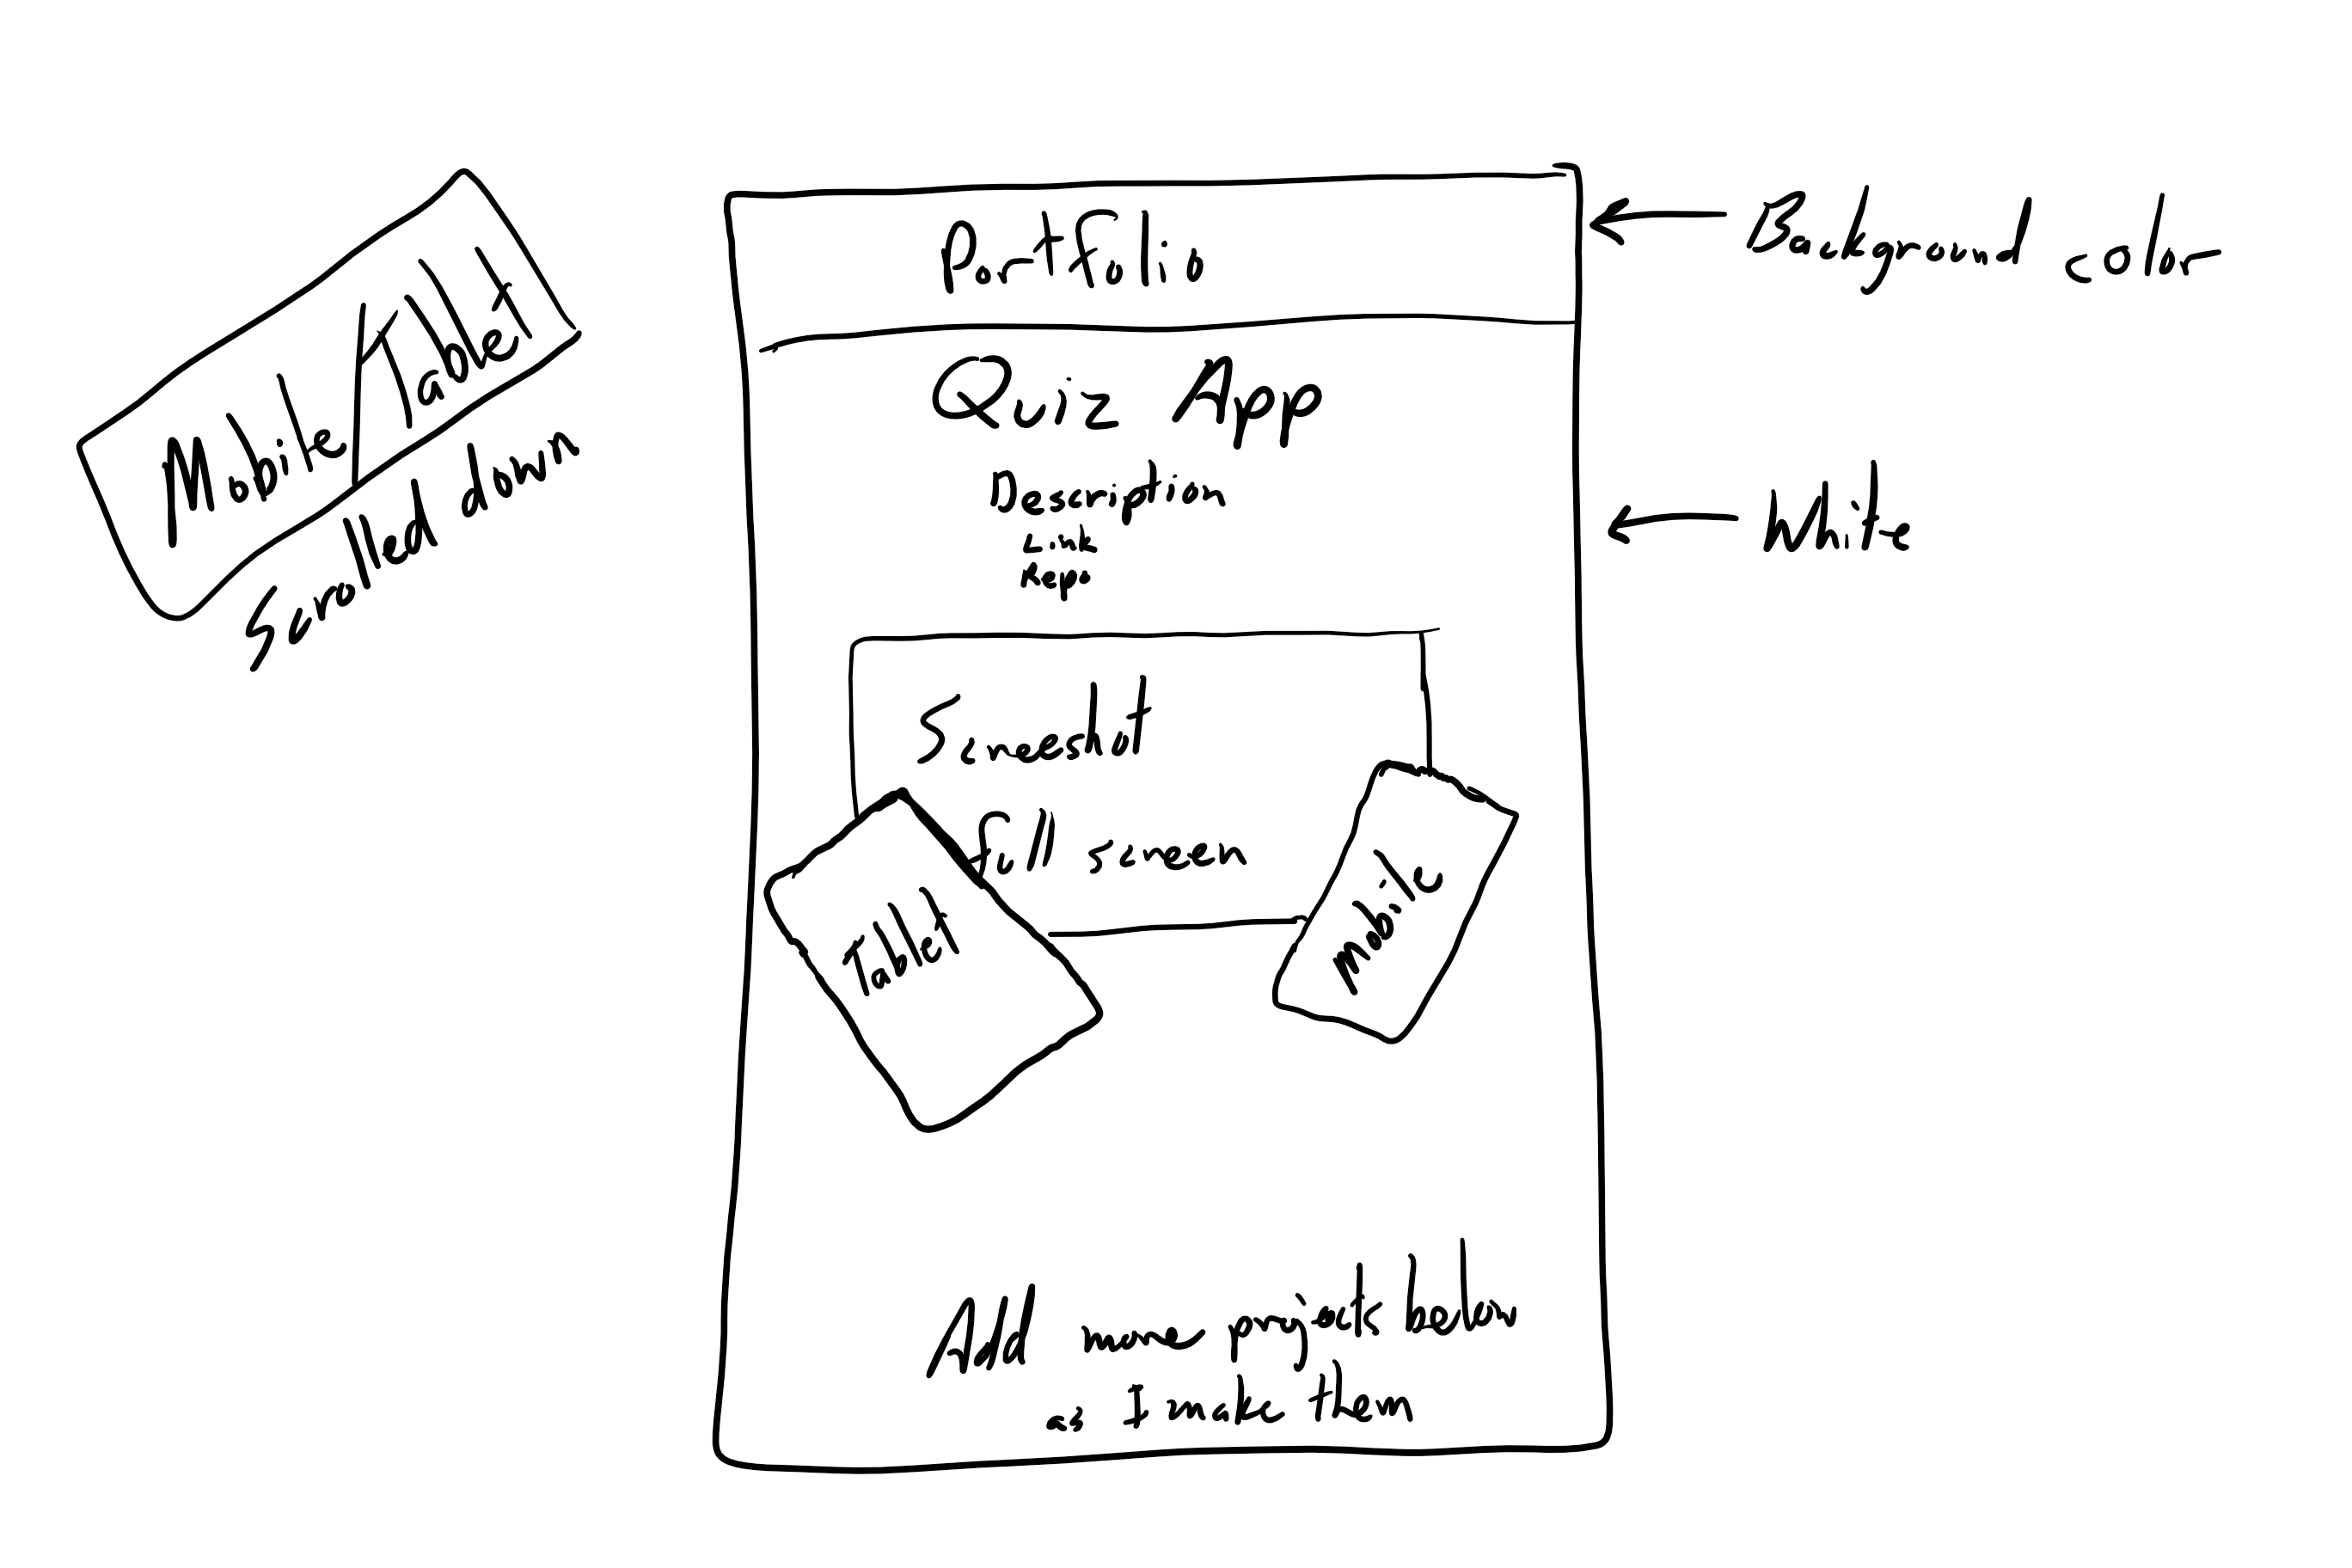 Mobile/Tablet
Scrolled down
Portfolio
Background color
Quiz App
Description
Link
Repo
White
Screenshot
full screen
Tablet
Mobile
Add more projects below
as I make them